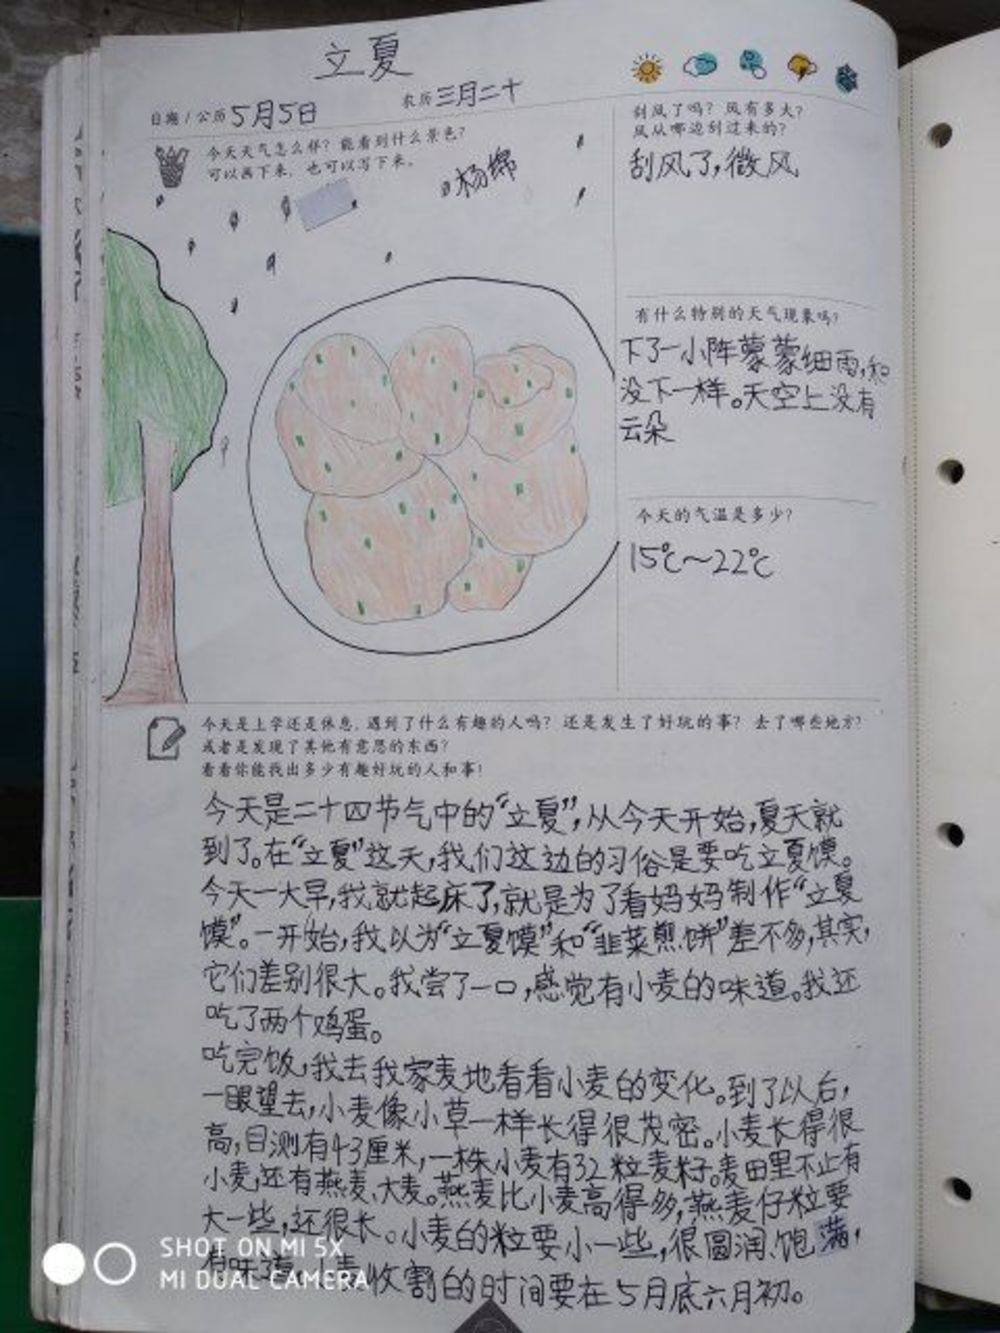 立夏
日期/公历 5月5日 农历 三月二十
今天天气怎么样？能看到什么景色？
可以画下来，也可以写下来。
杨绵
刮风了吗？风有多大？
风从哪边刮过来的？
刮风了，微风
有什么特别的天气现象吗？
下了一小阵蒙蒙细雨，和
没下一样。天空上没有
云朵
今天的气温是多少？
15℃～22℃
今天是上学还是休息，遇到了什么有趣的人吗？还是发生了好玩的事？去了哪些地方？
或者是发现了其他有意思的东西？
看看你能找出多少有趣好玩的人和事！
今天是二十四节气中的“立夏”，从今天开始，夏天就
到了。在“立夏”这天，我们这边的习俗是要吃立夏馍。
今天一大早，我就起床了，就是为了看妈妈制作“立夏
馍”。一开始，我以为“立夏馍”和“韭菜煎饼”差不多，其实，
它们差别很大。我尝了一口，感觉有小麦的味道。我还
吃了两个鸡蛋。
吃完饭，我去我家麦地看看小麦的变化。到了以后，
一眼望去，小麦像小草一样长得很茂密。小麦长得很
高，目测有43厘米，一株小麦有32粒麦籽。麦田里不止有
小麦，还有燕麦、大麦。燕麦比小麦高得多，燕麦仔粒要
大一些，还很长。小麦的粒要小一些，很圆润、饱满，
有味道。小麦收割的时间要在5月底六月初。
SHOT ON MI 5X
MI DUAL CAMERA